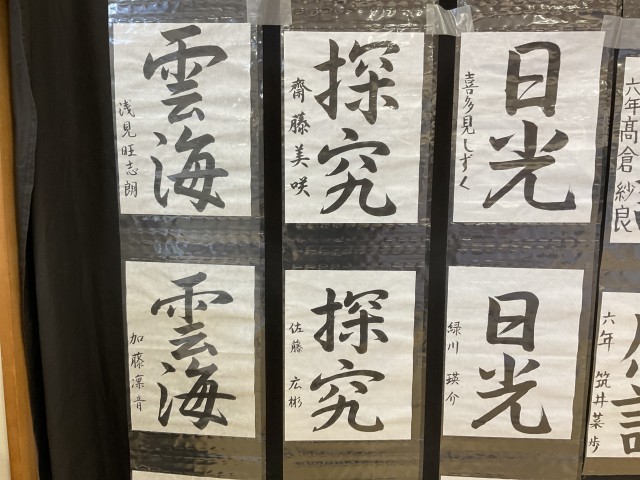 雲海
浅見旺志朗
探究
齋藤美咲
日光
喜多見しずく
六年髙倉紗良
雲海
加藤凜音
探究
佐藤広彬
日光
緑川瑛介
六年筑井菜歩